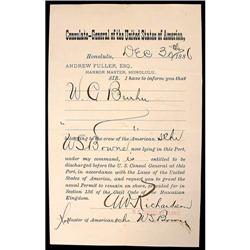 Consulate-General of the United States of America,
Honolulu, Dec 30th 1886
ANDREW FULLER, ESQ.,
HARBOR MASTER, HONOLULU.
SIR. I have to inform you that
W. C.
belonging to the crew of the American schr
W S Bowne now lying in this Port,
under my command, is entitled to be
discharged before the U. S. Consul General at this
Port, in accordance with the Laws of the United
States of America, and request you to grant the
usual Permit to remain on shore, provided for in
Section 156 of the Civil Code of the Hawaiian
Kingdom.
Richardson
Master of American sch W. S. Bowne